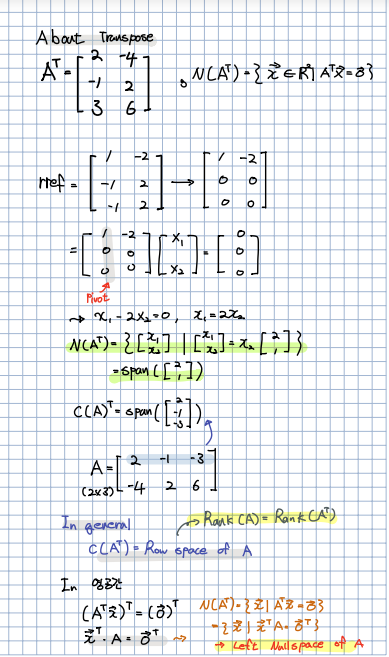 About Transpose
Aᵀ = [ 2 -4 ; -1 2 ; 3 6 ] , N(Aᵀ) = { x⃗ ∈ R² | Aᵀx⃗ = 0⃗ }
rref = [ 1 -2 ; -1 2 ; -1 2 ] → [ 1 -2 ; 0 0 ; 0 0 ]
= [ 1 -2 ; 0 0 ; 0 0 ] [ x₁ ; x₂ ] = [ 0 ; 0 ; 0 ]
Pivot
→ x₁ - 2x₂ = 0, x₁ = 2x₂
N(Aᵀ) = { [ x₁ ; x₂ ] | [ x₁ ; x₂ ] = x₂ [ 2 ; 1 ] }
= span ( [ 2 ; 1 ] )
C(A)ᵀ = span ( [ 2 ; -1 ; -3 ] )
A = [ 2 -1 -3 ; -4 2 6 ]
(2x3)
In general → Rank(A) = Rank(Aᵀ)
C(Aᵀ) = Row space of A
In 영공간
(Aᵀx⃗)ᵀ = (0⃗)ᵀ
x⃗ᵀ · A = 0⃗ᵀ →
N(Aᵀ) = { x⃗ | Aᵀx⃗ = 0⃗ }
= { x⃗ | x⃗ᵀA = 0⃗ᵀ }
→ Left Nullspace of A